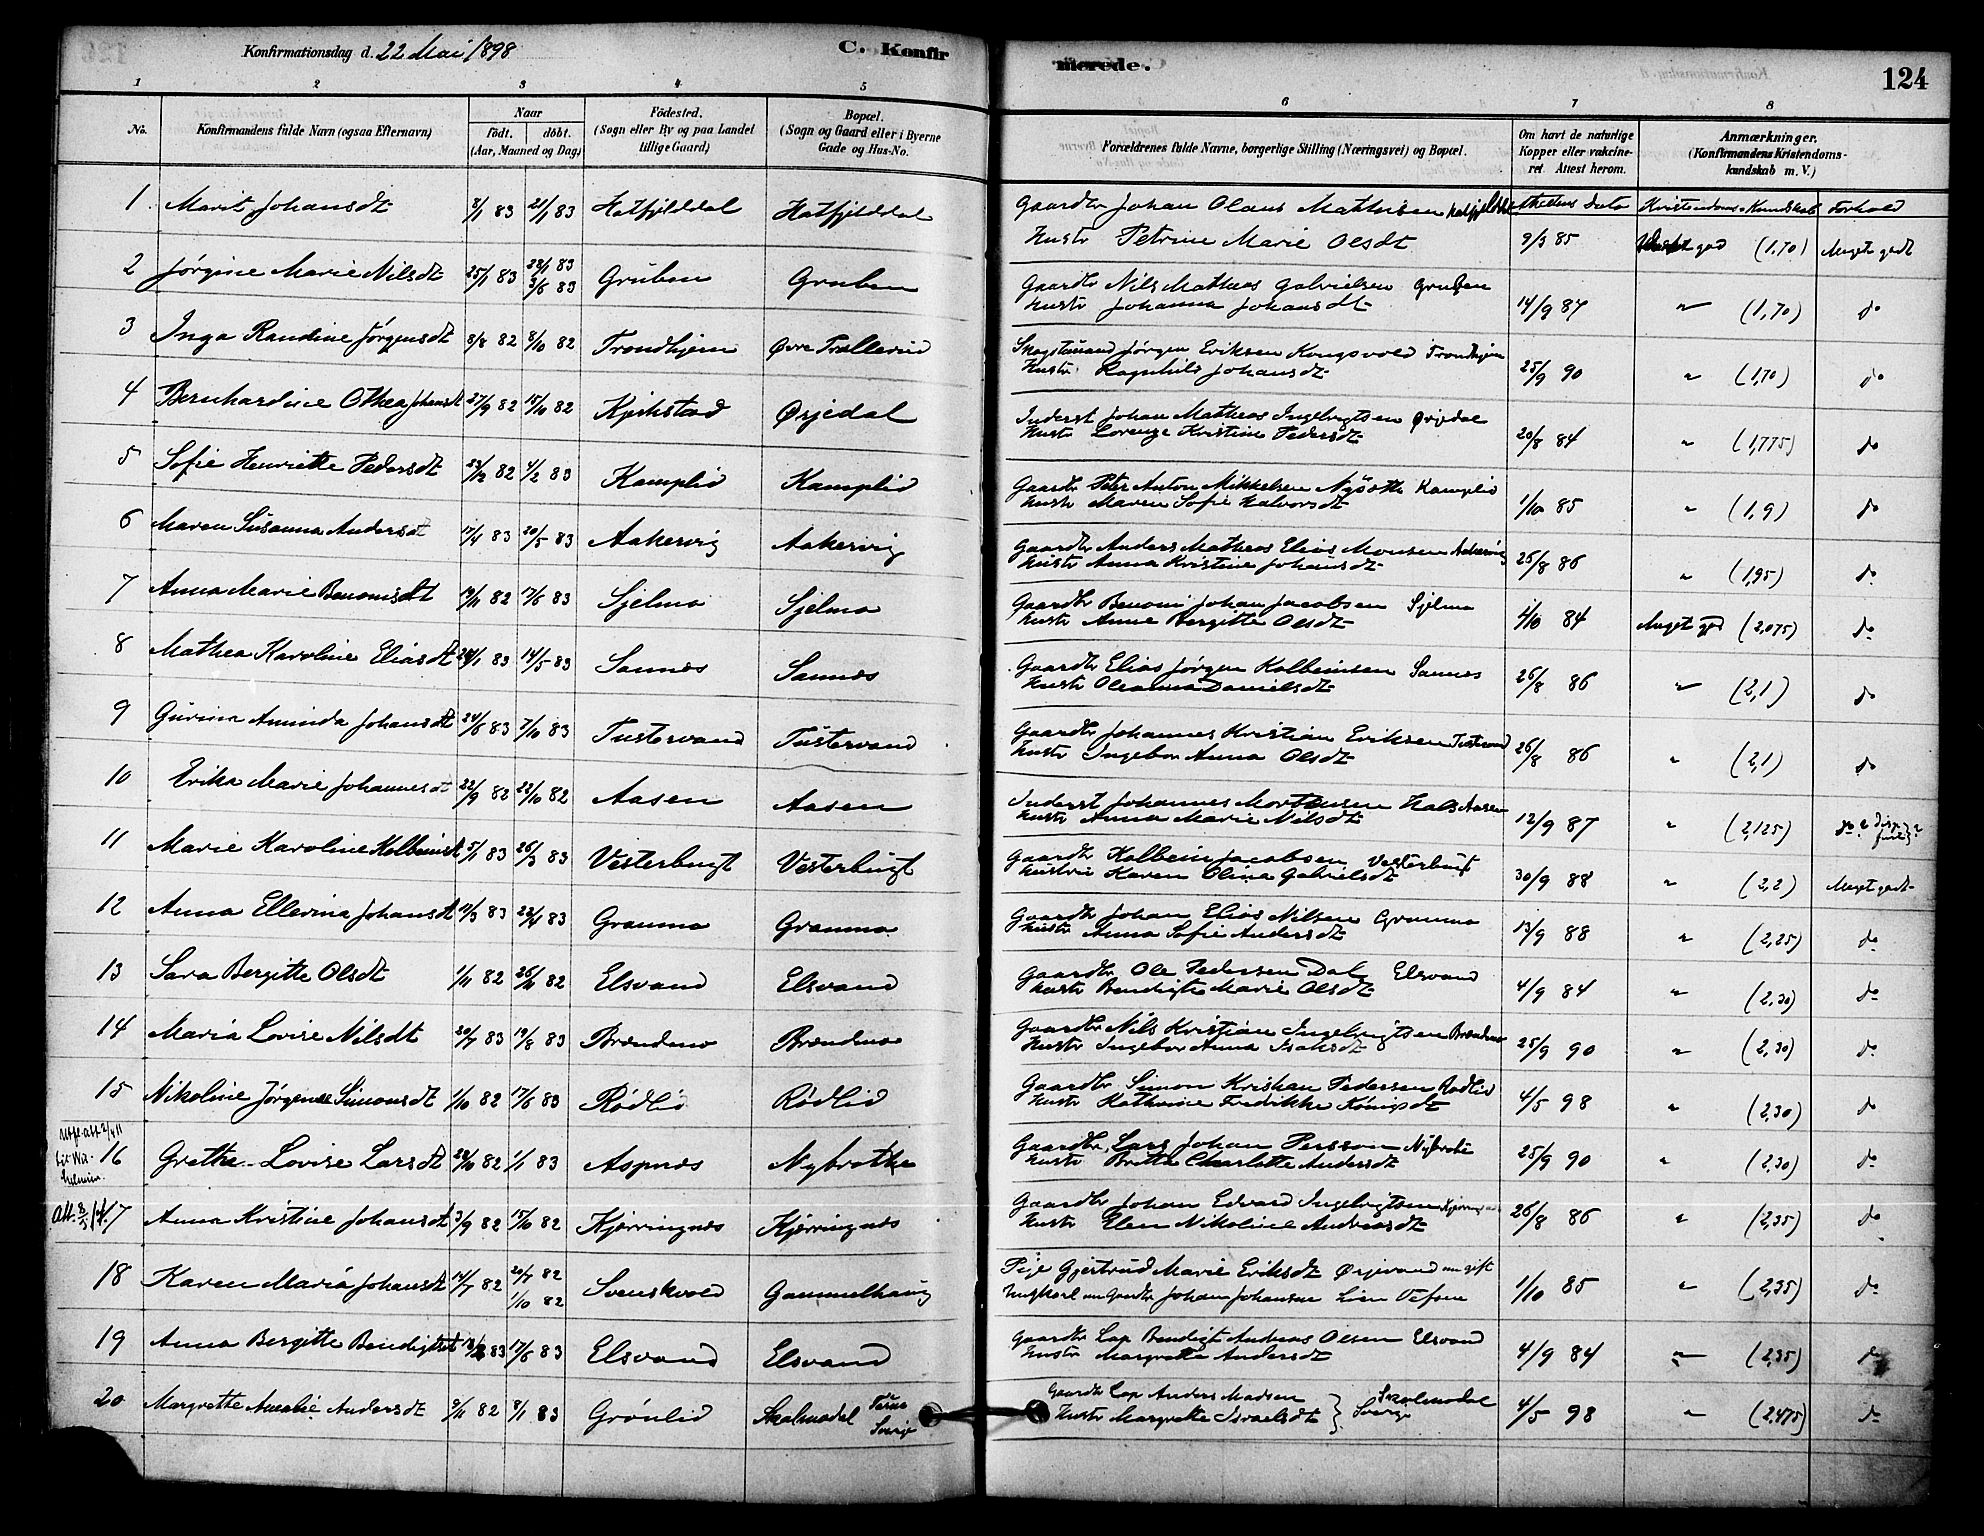 Konfirmationsdag d. 22 Mai 1898
C. Konfirmerede.
124
1 2 3 4 5 6 7 8
No.
Konfirmandens fulde Navn (ogsaa Efternavn)
Naar
födt. döbt.
(Aar, Maaned og Dag)
Födested.
(Sogn eller By og paa Landet
tillige Gaard)
Bopæl.
(Sogn og Gaard eller i Byerne
Gade og Hus-No.
Forældrenes fulde Navne, borgerlige Stilling (Næringsvei) og Bopæl.
Om havt de naturlige
Kopper eller vakcine-
ret. Attest herom.
Anmærkninger.
(Konfirmandens Kristendoms-
kundskab m. V.)
Attestens Dato Kristendoms-Kundskab Forhold
1 Marit Johansdt 8/1 83 21/1 83 Hatfjelddal Hatfjelddal Gaardbr Johan Olaus Mathisen Hatfjelddal
Hustr Petrine Marie Olsdt 9/3 85 god (1,70) Meget godt
2 Jørgine Marie Nilsdt 25/1 83 28/1 83 3/6 83 Gruben Gruben Gaardbr Nils Matheas Gabrielsen Gruben
Hustr Johanna Johansdt 14/9 87 " (1,70) do
3 Inga Randine Jørgensdt 8/8 82 8/10 82 Trondhjem Øvre Trollerud Skogstmand Jørgen Eriksen Kongsvold Trondhjem
Hustr Ragnhild Johansdt 25/9 90 " (1,70) do
4 Bernhardine Othea Johansdt 27/9 82 15/10 82 Kjerkstad Ørjedal Inderst Johan Matheas Ingebrigtsen Ørjedal
Hustr Lorenze Kristine Pedersdt 20/8 84 " (1,775) do
5 Sofie Henriette Pedersdt 23/12 82 4/2 83 Kamplid Kamplid Gaardbr Peter Anton Mikkelsen Kamplid
Hustr Maren Sofie Halvorsdt 1/10 85 " (1,9) do
6 Maren Susanna Andersdt 17/4 83 20/5 83 Aakervig Aakervig Gaardbr Anders Matheas Elias Monsen Aakervig
Hustr Anna Kristine Johansdt 26/8 86 " (1,95) do
7 Anna Marie Benonisdt 19/11 82 17/6 83 Sjelmo Sjelmo Gaardbr Benoni Johan Jacobsen Sjelmo
Hustr Anne Bergitte Olsdt 4/10 84 Meget god (2,075) do
8 Mathea Karoline Eliasdt 24/1 83 14/5 83 Sannæs Sannæs Gaardbr Elias Jørgen Kolbeinsen Sannæs
Hustr Oleanna Danielsdt 26/8 86 " (2,1) do
9 Gurina Aminda Johansdt 24/6 83 7/10 83 Tustervand Tustervand Gaardbr Johannes Kristian Eriksen Tustervand
Hustr Ingebor Anna Olsdt 26/8 86 " (2,1) do
10 Erika Marie Johannesdt 22/9 82 22/10 82 Aasen Aasen Inderst Johannes Mortensen Hals Aasen
Hustr Anna Marie Nilsdt 12/9 87 " (2,125)
11 Marie Karoline Kolbeinsdt 5/1 83 26/3 83 Vesterbugt Vesterbugt Gaardbr Kolbein Jacobsen Vesterbugt
Hustru Karen Olina Gabrielsdt 30/9 88 " (2,2) Meget godt
12 Anna Ellerina Johansdt 17/3 83 22/4 83 Granmo Granmo Gaardbr Johan Elias Nilsen Granmo
Hustr Anna Sofie Andersdt 13/9 88 " (2,25) do
13 Sara Bergitte Olsdt 1/11 82 26/11 82 Elsvand Elsvand Gaardbr Ole Pedersen Dal Elsvand
Hustr Bendigte Marie Olsdt 4/9 84 " (2,30) do
14 Maria Lovise Nilsdt 20/7 83 19/8 83 Brændmo Brændmo Gaardbr Nils Kristian Ingebrigtsen Brændmo
Hustr Ingebor Anna Isaksdt 25/9 90 " (2,30) do
15 Nikoline Jørgensine Simonsdt 1/10 82 17/6 83 Rødlid Rødlid Gaardbr Simon Kristian Pedersen Rødlid
Hustr Kathrine Fredrikke Königsdt 4/5 98 " (2,30) do
16 Grethe Lovise Larsdt 28/10 82 1/1 83 Aspnæs Nybrotte Gaardbr Lars Johan Persson Nybrotte
Hustr Britta Charlotte Andersdt 25/9 90 " (2,30) do
17 Anna Kristine Johansdt 3/9 82 15/10 82 Kjerringnæs Kjerringnæs Gaardbr Johan Edvard Ingebrigtsen Kjerringnæs
Hustr Elen Nikoline Andreasdt 26/8 86 " (2,35) do
18 Karen Maria Johansdt 14/7 82 20/7 82 1/10 82 Svenskvold Gammelhaug Pige Gjertrud Marie Eriksdt Ørjevand nu gift
Ungkarl nu Gaardbr Johan Johansen Lien Vefsen 1/10 85 " (2,35) do
19 Anna Bergitte Bendigtsdt 83 17/6 83 Elsvand Elsvand Gaardbr Lap Bendigt Andreas Olsen Elsvand
Hustr Margrethe Andersdt 4/9 84 " (2,35) do
20 Margrethe Amalie Andersdt 9/11 82 8/1 83 Grönlid Skalmodal Tärna Sverige Gaardbr Lap Anders Madsen
Hustr Margrethe Israelsdt } Skalmodal Sverige 4/5 98 " (2,475) do